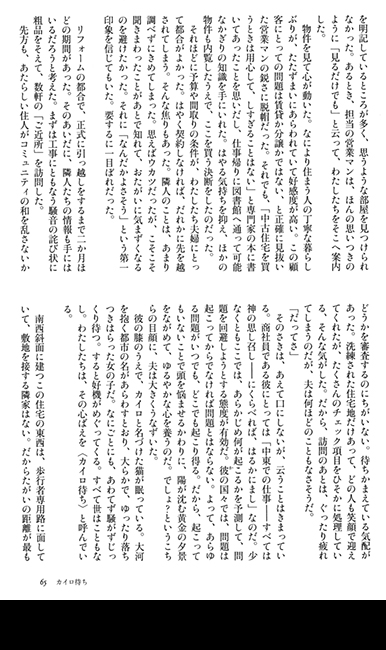 を明記しているところが多く、思うような部屋を見つけられ
なかった。あるとき、担当の営業マンは、ほんの思いつきの
ように「見るだけでも」と云って、わたしたちをそこへ案内
した。
物件を見て心が動いた。なにより住まう人の丁寧な暮らし
ぶりが、たたずまいにあらわれていて好感度が高い。この顧
客にとっての問題は賃貸か分譲かではない、と正確に見抜い
た営業マンの鋭さに脱帽だった。それでも、「中古住宅を買
うときは用心して、しすぎることはない」と専門家の本に書
いてあったことを思いだし、仕事帰りに図書館へ通って可能
なかぎりの知識を手にいれた。はやる気持ちを抑え、ほかの
物件も内覧したうえで、ここを買う決断をしたのだった。
それほどに予算や間取りの条件が、わたしたち夫婦にとっ
て都合がよかった。はやく契約しなければ、だれかに先を越
されてしまう。そんな焦りもあった。隣人のことは、あまり
調べずにきめてしまった。思えばウカツだったが、こそこそ
聞きまわったことがあとで知れて、おたがいに気まずくなる
のを避けたかった。それに「なんだかよさそう」という第一
印象を信じてもいた。要するに一目ぼれだった。
リフォームの都合で、正式に引っ越しをするまで二か月ほ
どの期間があった。そのあいだに、隣人たちの情報も手には
いるだろうと考えた。まずは工事にともなう騒音の詫び状に
粗品をそえて、数軒の「ご近所」を訪問した。
先方も、あたらしい住人がコミュニティの和を乱さないか
どうかを審査するのにちがいない。待ちかまえている気配が
あった。洗練された住宅地だけあって、どの人も笑顔で迎え
てくれたが、たくさんのチェック項目をひそかに処理してい
る、そんな気がした。だから、訪問のあとは、ぐったり疲れ
てしまうのだが、夫は何ほどのこともなさそうだ。
「だってさ」
そのさきは、あえて口にしないが、云うことはきまってい
る。商社員である彼にとっては「中東での仕事――すべては
神の思し召し――にくらべれば、はるかにまし」なのだ。少
なくともここでは、あらかじめ何が起こるかを予測して、問
題を回避しようとする態度が有効だ。彼の国々では、問題は
起こってからでなければ問題とはならない。よって、あらゆ
る問題がいつでも、どこでも起こり得る。だから、起こって
もいないことで頭を悩ませるかわりに、陽が沈む黄金の夕景
をながめて、ゆるやかな心を養うのだ。でしょ？というこち
らの目顔に、夫は大きくうなずいた。
彼の膝のうえで、カイロと名づけた猫が眠っている。大河
を抱く都市の名があらわすとおり、大らかで、ゆったり落ち
つきはらった女の子だ。なにごとにも、あわてず騒がずじっ
くり待つ。すると好機がめぐってくる。すべて世はこともな
し。わたしたちは、その心ばえを〈カイロ待ち〉と呼んでい
る。
南西斜面に建つこの住宅の東西は、歩行者専用路に面して
いて、敷地を接する隣家はない。だからたがいの距離が最も
65　カイロ待ち